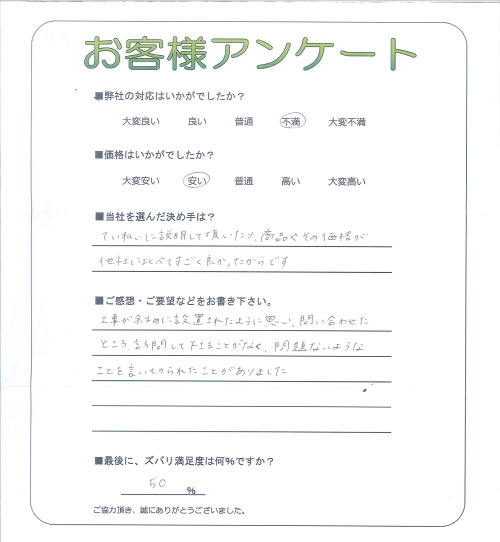 お客様アンケート
■弊社の対応はいかがでしたか？
大変良い 良い 普通 不満 大変不満
■価格はいかがでしたか？
大変安い 安い 普通 高い 大変高い
■当社を選んだ決め手は？
ていねいに説明して頂いたり、商品やその価格が
他社に比べてすごく良かったからです
■ご感想・ご要望などをお書き下さい。
工事が斜めに設置されたように思い、問い合わせた
ところ、訪問して下さることがなく、問題ないような
ことを言い切られたことがありました
■最後に、ズバリ満足度は何%ですか？
50 %
ご協力頂き、誠にありがとうございました。